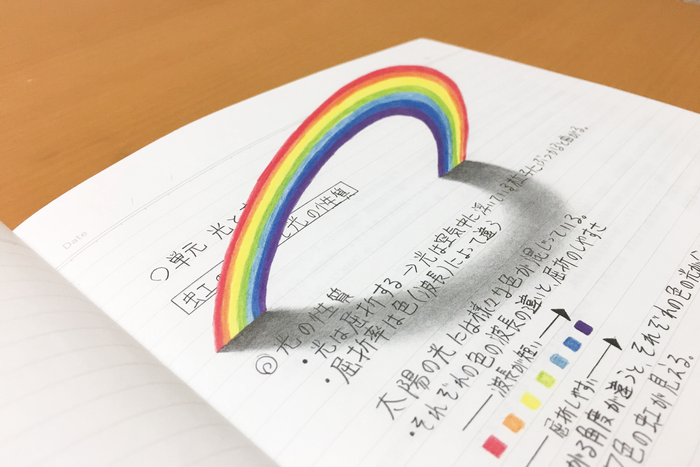 Date
○単元 光と
虹 と光の性質
◎光の性質
・光は屈折する→光は空気中に浮いている粒子にぶつかると曲がる。
・屈折率は色(波長)によって違う
太陽の光には様々な色が混じっている。
・それぞれの色の波長の違いと、屈折のしやすさ
波長が短い
屈折しやすい
がる角度が違うと、それぞれの色の光が
7色の虹が見える。